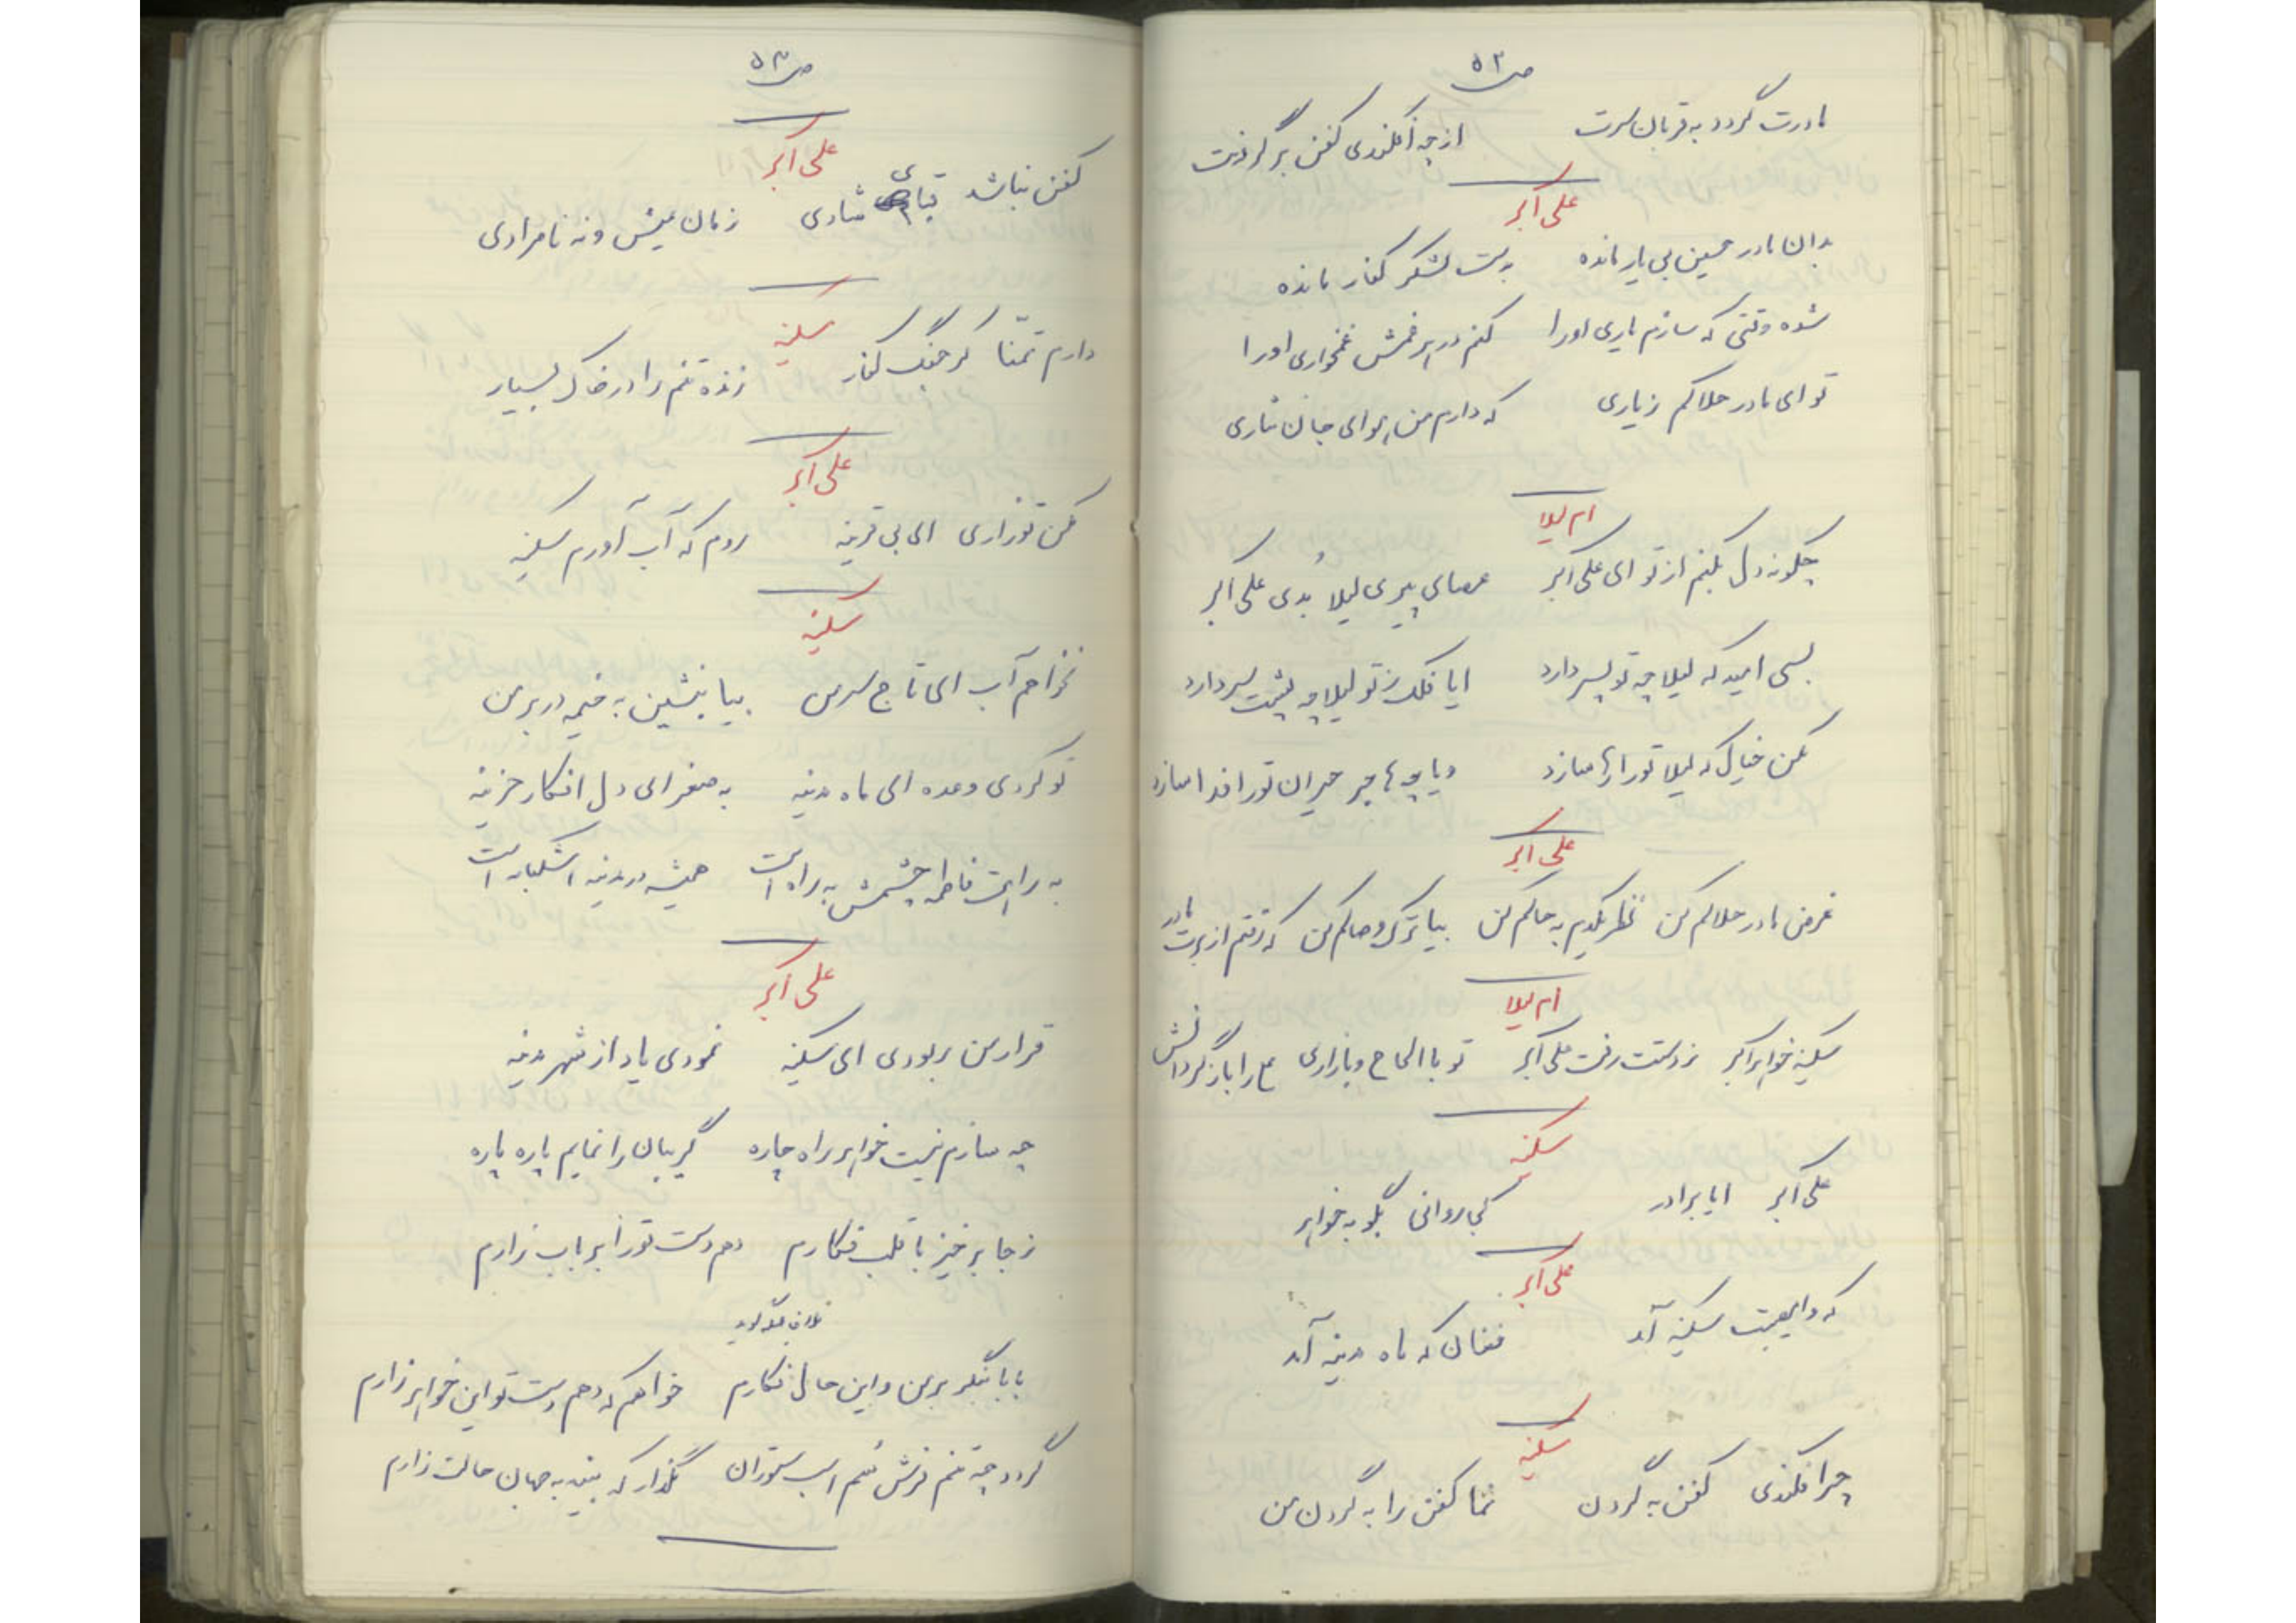 ص ۵۲
مادرت گردد به قربان سرت از چه افکندی کفن بر گردنت
علی اکبر
بدان مادر حسین بی یار مانده بدست لشکر کفار مانده
شده وقتی که سازم یاری او را کنم در هر غمش غمخواری او را
تو ای مادر حلالم کن ز یاری که دارم من هوای جان نثاری
ام لیلا
چگونه دل بکنم از تو ای علی اکبر عصای پیری لیلا بُدی علی اکبر
بسی امید که لیلا چه تو پسر دارد ایا فلک ز تو لیلا چه پشت سر دارد
مکن خیال که لیلا تو را رها سازد و یا چه هاجر حیران تو را فدا سازد
علی اکبر
غرض مادر حلالم کن نظر یکدم به حالم کن بیا ترک وصالم کن که رفتم از برت مادر
ام لیلا
سکینه خواهر اکبر ز دستت رفت علی اکبر تو با الحاح و با زاری را باز گردانش
سکینه
علی اکبر ایا برادر کجا روانی بگو به خواهر
علی اکبر
که وا مصیبت سکینه آمد فغان که ماه مدینه آمد
سکینه
چرا فکندی کفن به گردن نما کفن را به گردن من
ص ۵۳
علی اکبر
کفن نباشد قبای شادی زمان عیش و نه نامرادی
سکینه
دارم تمنّا کز جنگ کفار زنده تنم را در خاک بسپار
علی اکبر
مکن تو زاری ای بی قرینه روم که آب آورم سکینه
سکینه
نخواهم آب ای تاج سر من بیا بنشین به خیمه در بر من
تو کردی وعده ای ماه مدینه به صغرای دل افکار حزینه
به راهت فاطمه چشمش به راه است همیشه در مدینه اشکبار است
علی اکبر
قرار من ربودی ای سکینه نمودی یاد از شهر مدینه
چه سازم نیست خواهر راه چاره گریبان را نمایم پاره پاره
ز جا برخیز با قلب فکارم دهم دست تو را بر باب زارم
بابا بنگر بر من و این حال فکارم خواهم که دهم دست تو این خواهر زارم
گردد چه تنم فرش سُم اسب ستوران نگذار که بیند به جهان حالت زارم